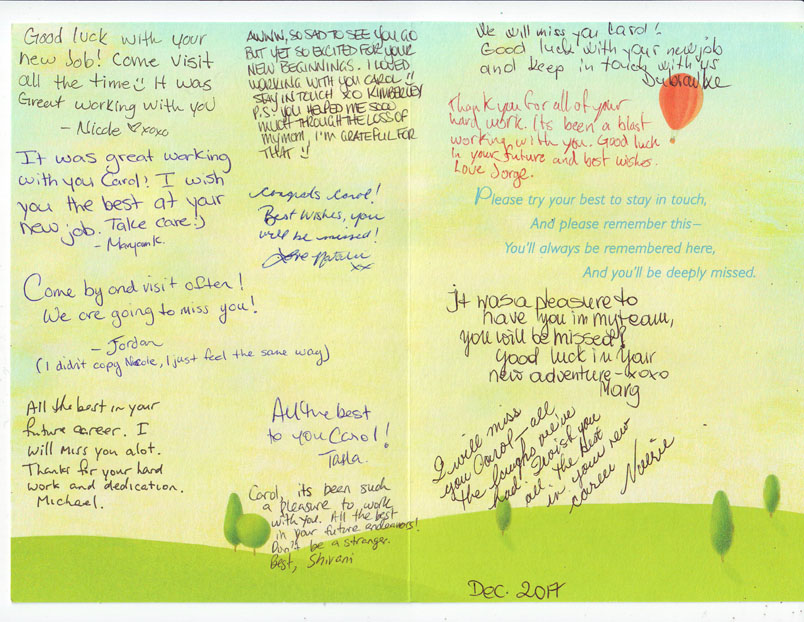 Good luck with your
new Job! Come visit
all the time It was
Great working with you
- Nicole xoxo
It was great working
with you Carol! I wish
you the best at your
new job. Take care!)
- Maryann K.
Come by and visit often!
We are going to miss you!
- Jordan
(I didn't copy Nicole, I just feel the same way)
All the best in your
future career. I
will miss you alot.
Thanks for your hard
work and dedication.
Michael.
AWWW, SO SAD TO SEE YOU GO
BUT YET SO EXCITED FOR YOUR
NEW BEGINNINGS. I LOVED
WORKING WITH YOU CAROL!!
STAY IN TOUCH XO KIMBERLEY
P.S. YOU HELPED ME SOOO
MUCH THROUGH THE LOSS OF
MY MOM, I'M GRATEFUL FOR
THAT
Congrats Carol!
Best Wishes, you
will be missed!
Love
xx
All the best
to you Carol!
Tara.
Carol, its been such
a pleasure to work
with you. All the best
in your future endeavors!
Don't be a stranger.
Best, Shivani
We will miss you Carol!
Good luck with your new job
and keep in touch with us
Dubravke
Thank you for all of your
hard work. Its been a blast
working with you. Good luck
in your future and best wishes.
Love Jorge.
Please try your best to stay in touch,
And please remember this–
You'll always be remembered here,
And you'll be deeply missed.
It was a pleasure to
have you in my team,
you will be missed!
Good luck in your
new adventure - xoxo
Marg
I will miss
you Carol - all
the laughs we've
had! I wish you
all the best
in your new
career
Dec. 2017